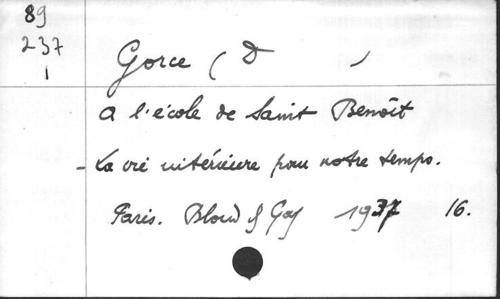 89
237
1
Gorce (D )
A l'école de Saint Benoît
- La vie intérieure pour notre temps.
Paris. Bloud & Gay 1937 16.